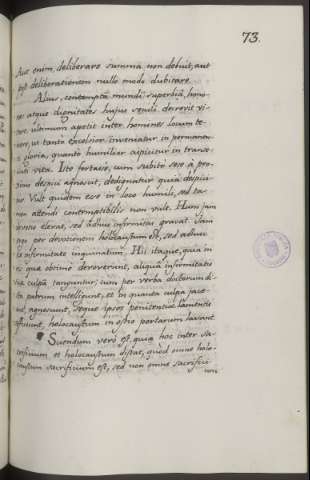 73.
Aut enim deliberare summa non debuit, aut
post deliberationem nullo modo dubitare.
Alius, contempta mundi superbiâ, hono-
res atque dignitates hujus seculi decrevit vi-
tare, ultimum apetit inter homines locum te-
nere, ut tanto excelsior inveniatur in permanen-
ti gloria, quanto humilior aspicitur in transe-
unti vita. Iste fortasse, cum subitò sese à pro-
ximo despici agnoscit, dedignatur quia despici-
tur. Vult quidem esse in loco humili, sed ta-
men attendi contemptibilis non vult. Hunc jam
devotio elevat, sed adhuc infirmitas gravat. Jam
per devotionem holocaustum est, sed adhuc
infirmitate inquinatum. Hii itaque, quia in
ea quæ obtime decreverunt, aliqua infirmitatis
suæ culpa tanguntur; cum per verba doctorum di-
cta patrum intelligunt, et in quanta culpa jace-
ant, agnoscunt, seque ipsos penitentiæ lamentis
afficiunt, holocaustum in ostio portarum lavant
Sciendum verò est, quia hoc inter sa-
crificium et holocaustum distat, quòd omne holo-
caustum sacrificium est, sed non omne sacrifici-
um